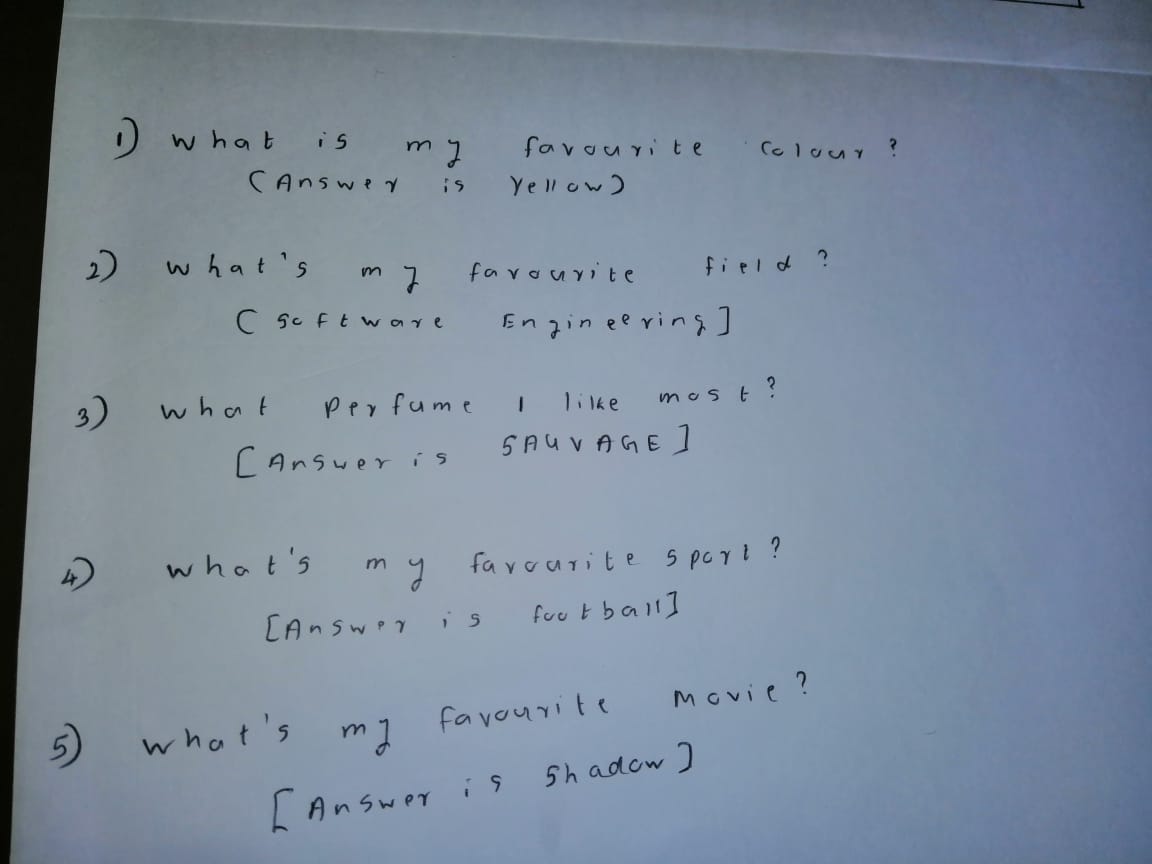 1) What is my favourite colour ?
(Answer is Yellow)
2) What's my favourite field ?
( Software Engineering ]
3) What perfume I like most ?
[ Answer is SAUVAGE ]
4) What's my favourite sport ?
[Answer is football]
5) What's my favourite Movie ?
[ Answer is Shadow ]